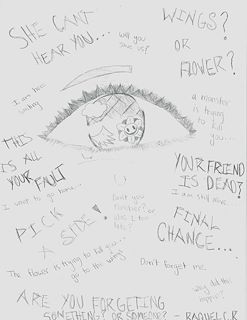 SHE CAN'T
HEAR YOU...
will you
save us?
WINGS?
OR
FLOWER?
I am here
waiting
a monster
is trying
to kill
you...
THIS
IS ALL
YOUR FAULT
I want to go home...
YOUR FRIEND
IS DEAD?
I am still alive.
PICK
A SIDE!
Don't you
remember? or
was I too
late?
FINAL
CHANGE...
The flower is trying to kill you...
go to the wings!
Don't forget me.
why did this
happen?
ARE YOU FORGETING
SOMETHING? OR SOMEONE?
- RAQUEL C.R